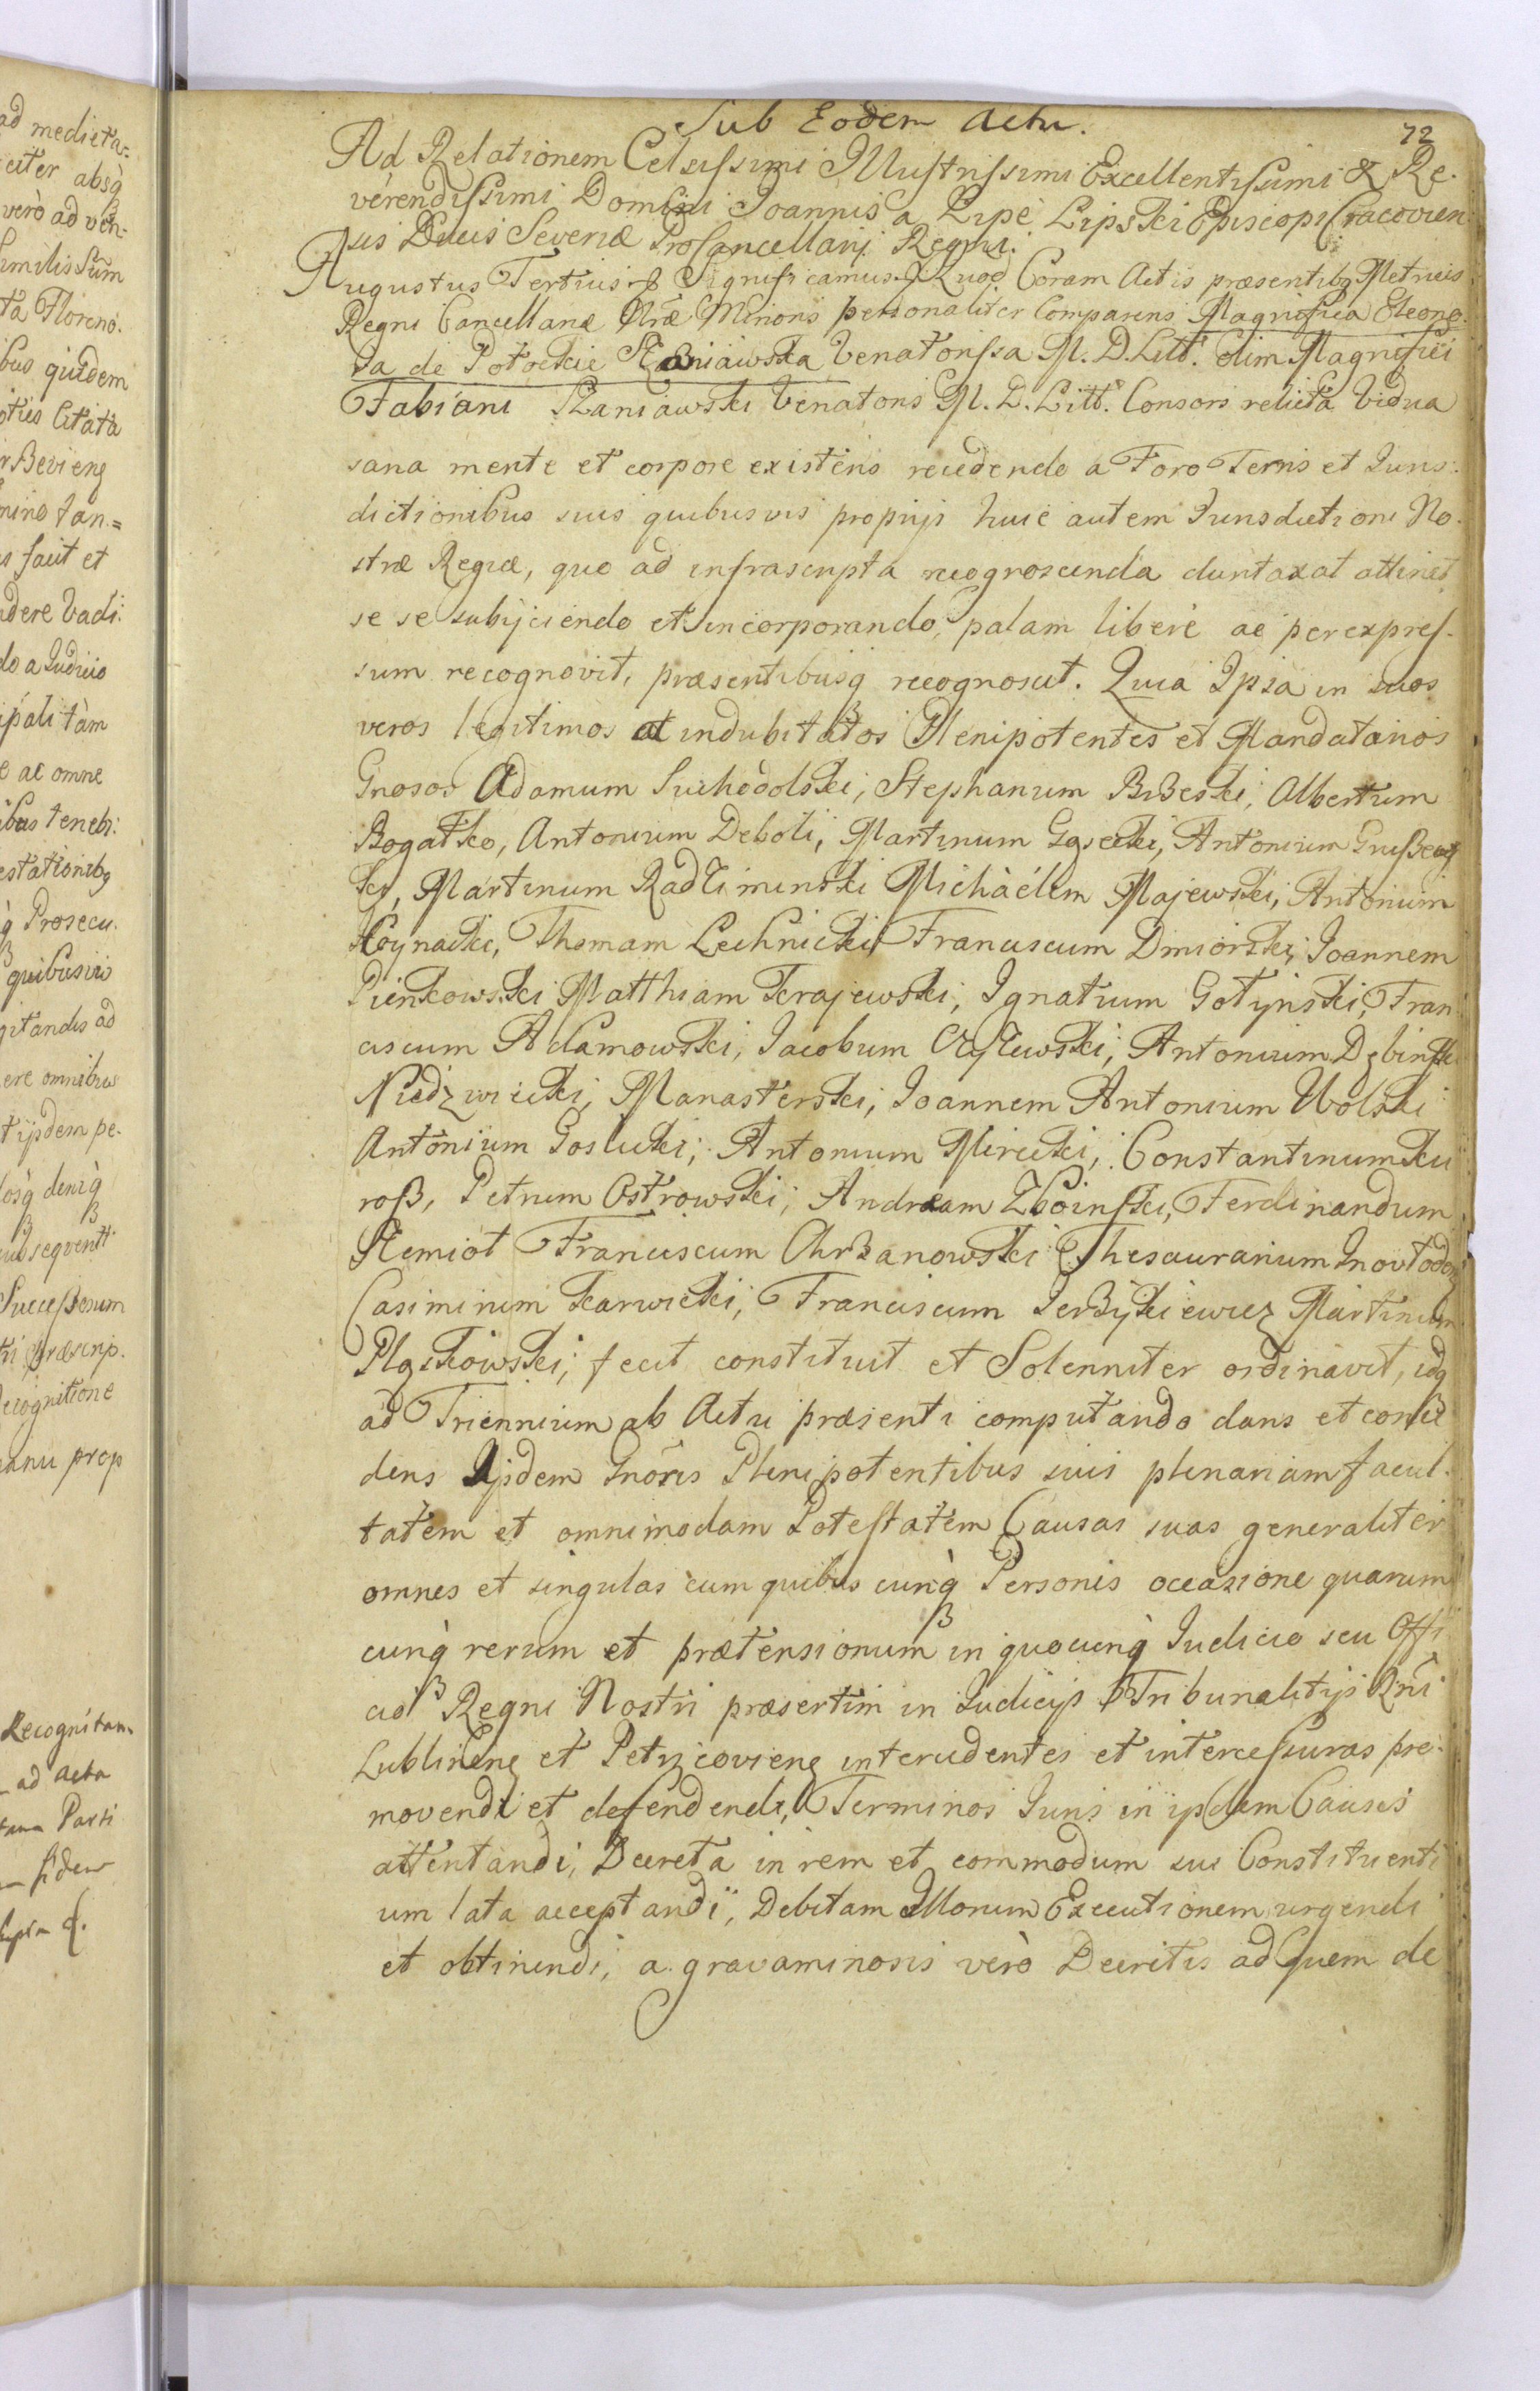 ad medieta=
citer absq
verò ad ven-
similis Sum
ta Floreno.
bus quidem
oties Citata
mino tan=
s facit et
dere Vadi:
do a Iudicio
ipali tàm
e ac omne
ibus teneb:
estationibq
q Prosecu.
quibusvis
gitandis ad
ere omnibus
t ijsdem pe-
osq deniq
subseqventt
Successorum
ri præscrip.
Recognitione
manu prop
Recognitam
ad acta
Parti
fidem
72
Sub Eodem Actu.
Ad Relationem Celsissimi Illustrissimi Excellentissimi & Re-
verendissimi Domini Joannis a Lipe Lipski Episcopi Cracovien
sis Ducis Severiæ ProCancellarij Regni.
Augustus Tertius &. Significamus &. Quod Coram Actis præsentibq Metrices
Regni Cancellariæ Nræ Minoris personaliter Comparens Magnifica Eleono-
ra de Potockie Szaniawska Venatorissa M. D. Litt. olim Magnifici
Fabiani Szaniawski Venatoris M. D. Litt. Consors relicta Vidua
sana mente et corpore existens recedendo a Foro Terris et Juris-
dictionibus suis quibusvis proprijs huic autem Jurisdictioni No-
stræ Regiæ, quo ad infrascripta recognoscenda duntaxat attinet
se se subijciendo et incorporando, palam liberè ac per expres-
sum recognovit, præsentibusq recognoscit. Quia Ipsa in suos
veros legitimos et indubitatos Plenipotentes et Mandatarios
Gnosos Adamum Suchodolski, Stephanum Brzeski, Albertum
Bogatko, Antonium Deboli, Martinum Gąsecki, Antonium Gruszeczki
Martinum Radziminski Michaélem Majewski, Antonium
Hoynacki, Thomam Lechnicki Franciscum Dmiorski, Joannem
Pienkowski Matthiam Krajewski, Ignatium Gotynski, Fran
ciscum Adamowski, Jacobum Antonium Dębinski
Niedzwiecki, Manasterski, Joannem Antonium Wolski
Antonium Goslicki, Antonium Mirecki, Constantinum Ku
rosz, Petrum Ostrowski, Andræam Zboinski, Ferdinandum
Ziemiot Franciscum Chrzanowski Thesaurarium
Casimirum Karwicki, Franciscum Jerzykiewicz Martinum
Pląskowski, fecit constituit et Solenniter ordinavit, idq
ad Triennium ab Actu præsenti computando dans et conce
dens Ijsdem Gnoris Plenipotentibus suis plenariam facul-
tatem et omnimodam Potestatem Causas suas generaliter
omnes et singulas cum quibus cunq Personis occasione quarum
cunq rerum et prætensionum in quocunq Iudicio seu Offi
cio Regni Nostri præsertim in Iudicijs Tribunalitijs Rñi
Lublinenq et Petricovienq intercedentes et intercessuras pro-
movendi et defendendi, Terminos Juris in ijsdem Causis
attentandi, Decreta in rem et commodum sui Constituenti
um lata acceptandi, Debitam Illorum Executionem urgendi
et obtinendi, a gravaminosis verò Decretis ad Quem de